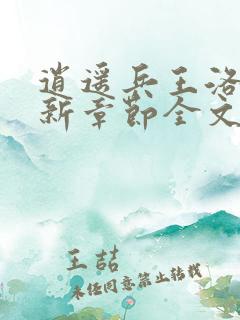 逍遥兵王洛
新章节全文
王喆
未经同意禁止转载